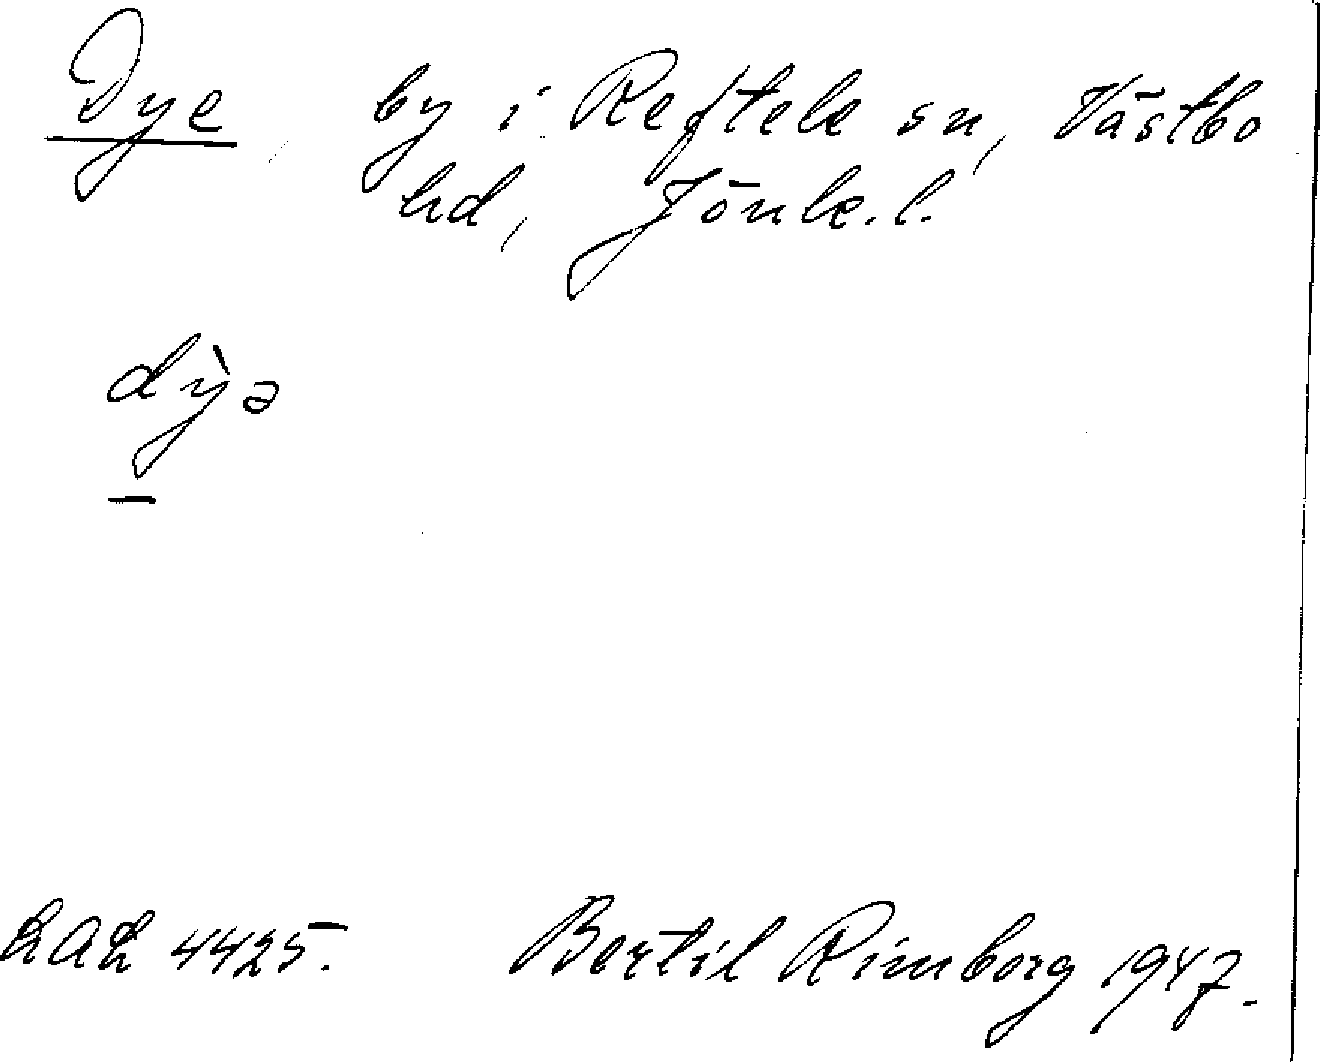 Dye, by i Reftele sn, Västbo
hd, Jönk. l.
dỳə
LAL 4425. Bertil Rimborg 1947.